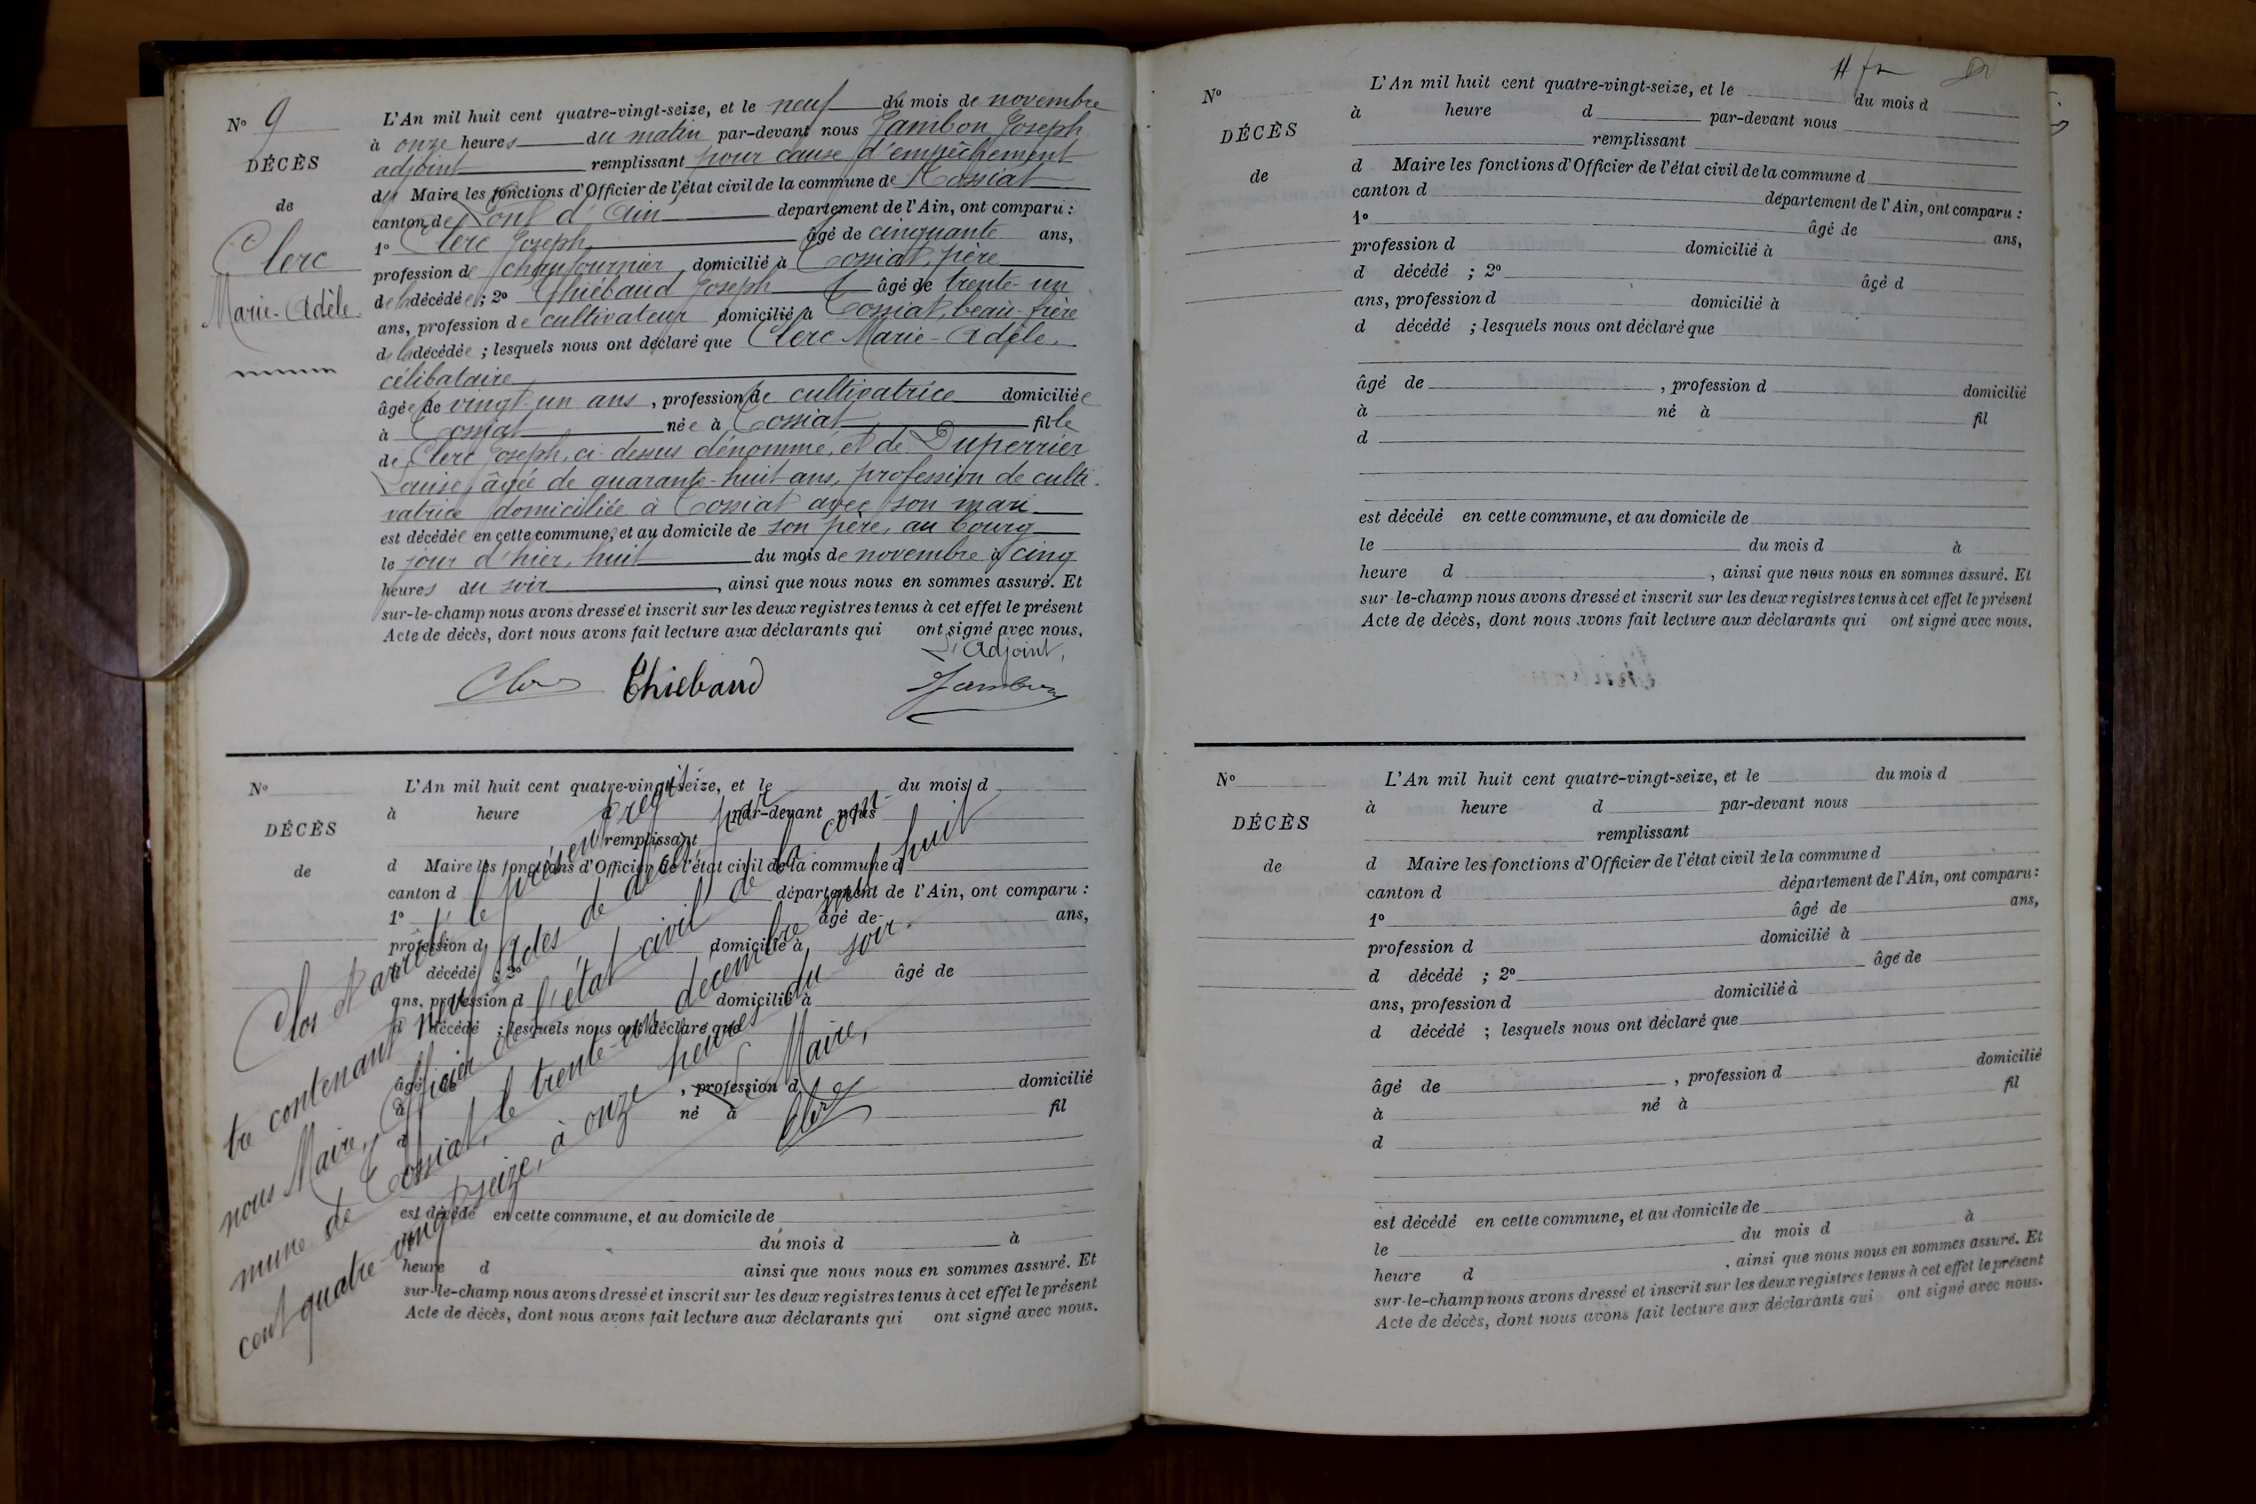 N° 9
DÉCÈS
de
Clerc
Marie-Adèle
L'An mil huit cent quatre-vingt-seize, et le neuf du mois de novembre
à onze heures du matin par-devant nous Jambon Joseph
adjoint remplissant pour cause d'empêchement
du Maire les fonctions d'Officier de l'état civil de la commune de Tossiat
canton de Pont d'Ain département de l'Ain, ont comparu :
1° Clerc Joseph, âgé de cinquante ans,
profession de chaufournier domicilié à Tossiat, père
de la décédée ; 2° Thiébaud Joseph âgé de trente-un
ans, profession de cultivateur domicilié à Tossiat, beau-frère
de la décédée ; lesquels nous ont déclaré que Clerc Marie-Adèle,
célibataire
âgée de vingt-un ans, profession de cultivatrice domiciliée
à Tossiat née à Tossiat fille
de Clerc Joseph, ci-dessus dénommé, et de Duperrier
Louise, âgée de quarante-huit ans, profession de culti-
vatrice domiciliée à Tossiat avec son mari
est décédée en cette commune, et au domicile de son père, au bourg
le jour d'hier, huit du mois de novembre à cinq
heures du soir, ainsi que nous nous en sommes assuré. Et
sur-le-champ nous avons dressé et inscrit sur les deux registres tenus à cet effet le présent
Acte de décès, dont nous avons fait lecture aux déclarants qui ont signé avec nous.
L'Adjoint,
Clerc Thiébaud Jambon
N°
DÉCÈS
de
L'An mil huit cent quatre-vingt-seize, et le du mois d
à heure d par-devant nous
remplissant
d Maire les fonctions d'Officier de l'état civil de la commune d
canton d département de l'Ain, ont comparu :
1° âgé de ans,
profession d domicilié à
d décédé ; 2° âgé de
ans, profession d domicilié à
d décédé ; lesquels nous ont déclaré que
âgé de , profession d domicilié
à né à fil
d
est décédé en cette commune, et au domicile de
du mois d à
heure d ainsi que nous nous en sommes assuré. Et
sur-le-champ nous avons dressé et inscrit sur les deux registres tenus à cet effet le présent
Acte de décès, dont nous avons fait lecture aux déclarants qui ont signé avec nous.
Clos et arrêté le présent regis-
tre contenant neuf actes de décès par
nous Maire, Officier de l'état civil de la com-
mune de Tossiat, le trente-un décembre mil huit
cent quatre-vingt-seize, à onze heures du soir.
Le Maire,
Clerc
N°
DÉCÈS
de
L'An mil huit cent quatre-vingt-seize, et le du mois d
à heure d par-devant nous
remplissant
d Maire les fonctions d'Officier de l'état civil de la commune d
canton d département de l'Ain, ont comparu :
1° âgé de ans,
profession d domicilié à
d décédé ; 2° âgé d
ans, profession d domicilié à
d décédé ; lesquels nous ont déclaré que
âgé de , profession d domicilié
à né à fil
d
est décédé en cette commune, et au domicile de
le du mois d à
heure d , ainsi que nous nous en sommes assuré. Et
sur-le-champ nous avons dressé et inscrit sur les deux registres tenus à cet effet le présent
Acte de décès, dont nous avons fait lecture aux déclarants qui ont signé avec nous.
N°
DÉCÈS
de
L'An mil huit cent quatre-vingt-seize, et le du mois d
à heure d par-devant nous
remplissant
d Maire les fonctions d'Officier de l'état civil de la commune d
canton d département de l'Ain, ont comparu :
1° âgé de ans,
profession d domicilié à
d décédé ; 2° âgé de
ans, profession d domicilié à
d décédé ; lesquels nous ont déclaré que
âgé de , profession d domicilié
à né à fil
d
est décédé en cette commune, et au domicile de
le du mois d à
heure d , ainsi que nous nous en sommes assuré. Et
sur-le-champ nous avons dressé et inscrit sur les deux registres tenus à cet effet le présent
Acte de décès, dont nous avons fait lecture aux déclarants qui ont signé avec nous.